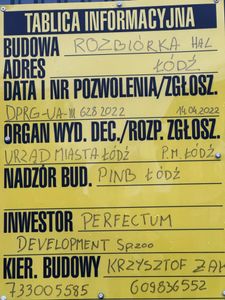 TABLICA INFORMACYJNA
BUDOWA ROZBIÓRKA HAL
ADRES ŁÓDŹ
DATA I NR POZWOLENIA/ZGŁOSZ.
DPRG-UA-III 628.2022 14.04.2022
ORGAN WYD. DEC./ROZP. ZGŁOSZ.
URZĄD MIASTA ŁÓDŹ P.M. ŁÓDŹ
NADZÓR BUD. PINB ŁÓDŹ
INWESTOR PERFECTUM
DEVELOPMENT Sp.zoo
KIER. BUDOWY KRZYSZTOF
733005585 609836552